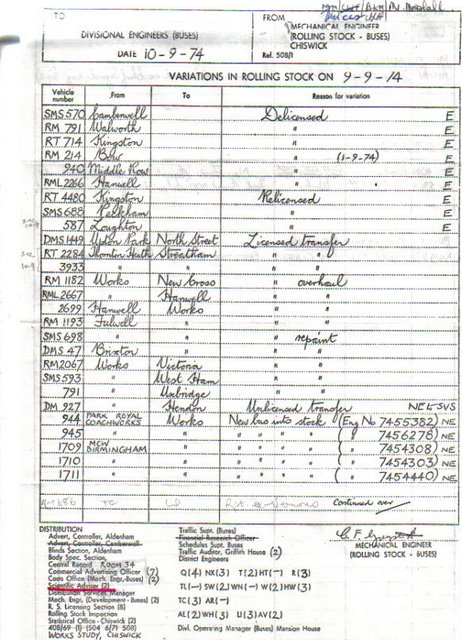 TO
DIVISIONAL ENGINEERS (BUSES)
DATE 10-9-74
FROM
MECHANICAL ENGINEER
(ROLLING STOCK - BUSES)
CHISWICK
Ref. 508/1
VARIATIONS IN ROLLING STOCK ON 9-9-74
Vehicle number From To Reason for variation
SMS 570 Camberwell Delicensed E
RM 791 Walworth " E
RT 714 Kingston " E
RM 214 Bow " (1-9-74) E
940 Middle Row " E
RML 2266 Hanwell " E
RT 4480 Kingston Relicensed E
SMS 688 Peckham " E
587 Loughton " E
DMS 1449 Upton Park North Street Licensed transfer
RT 2284 Thornton Heath Streatham " "
3933 " " " "
RM 1182 Works New Cross " overhaul
RML 2667 " Hanwell " "
2699 Hanwell Works " "
RM 1193 Fulwell " " "
SMS 698 " " " repaint
DMS 47 Brixton " " "
RM 2067 Works Victoria " "
SMS 593 " West Ham " "
791 " Uxbridge " "
DM 927 " Hendon Unlicensed transfer NE L-SVS
944 PARK ROYAL COACHWORKS Works New bus into stock (Eng No 7455382) NE
945 " " " " " " ( " 7456278) NE
1709 MCW BIRMINGHAM " " " " " ( " 7454308) NE
1710 " " " " " " ( " 7454303) NE
1711 " " " " " " ( " 7454440) NE
Continued over
DISTRIBUTION
Advert, Controller, Aldenham
Advert, Controller, Camberwell
Blinds Section, Aldenham
Body Spec. Section
Central Record ROOM 34
Commercial Advertising Officer (7)
Costs Office (Mech. Engr.-Buses) (2)
Scientific Adviser (2)
Distribution Services Manager
Mech. Engr. (Development - Buses) (2)
R. S. Licensing Section (8)
Rolling Stock Inspection
Statistical Office - Chiswick (2)
408/69 (1) (504 6/71 508)
WORKS STUDY, CHISWICK
Traffic Supt. (Buses)
Financial Research Officer
Schedules Supt. Buses
Traffic Auditor, Griffith House (2)
District Engineers
Q(4) NX(3) T(2) HT(-) R(3)
TL(-) SW(2) WN(-) W(2) HW(3)
TC(3) AR(-)
AL(2) WH(3) U(3) AV(2)
Divl. Operating Manager (Buses) Mansion House
MECHANICAL ENGINEER
(ROLLING STOCK - BUSES)